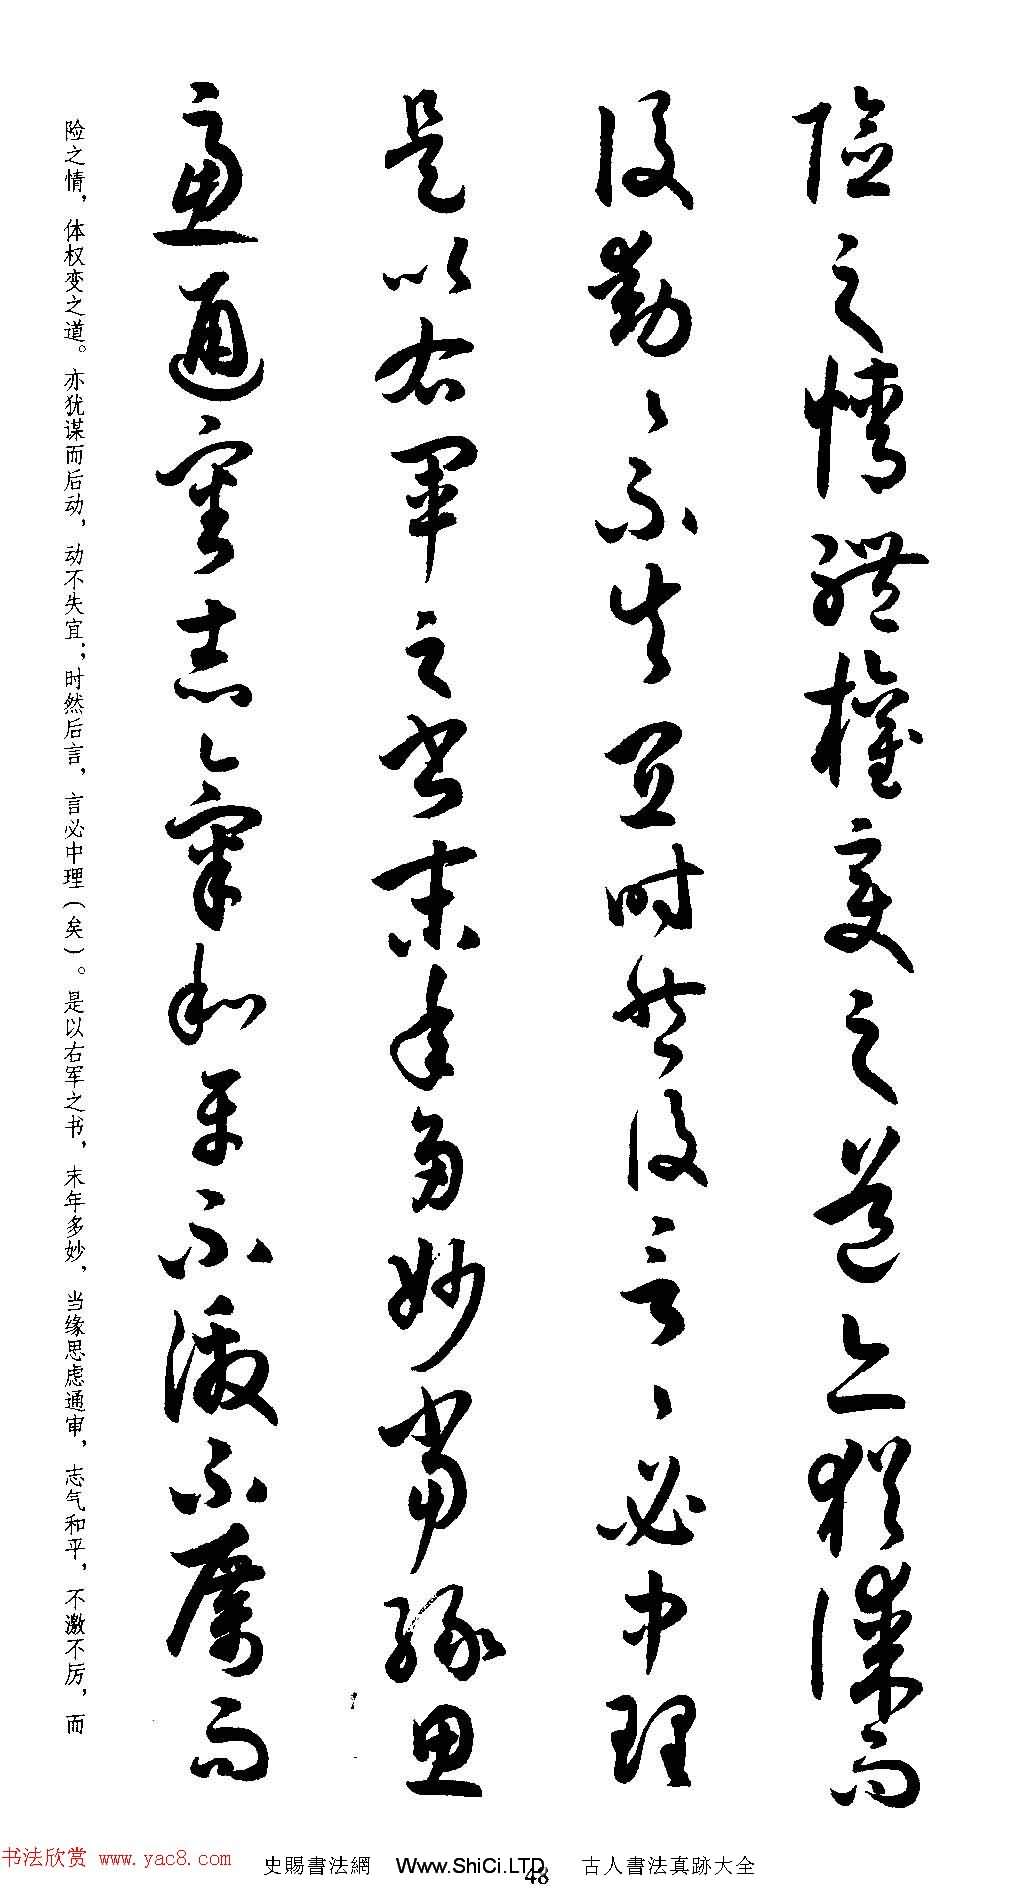 險之情體權變之道亦猶謀而
後動〻不失宜時然後言〻必中理
是以右軍之書末年多妙當緣思
慮通審志氣和平不激不厲而
险之情，体权变之道。亦犹谋而后动，动不失宜；时然后言，言必中理（矣）。是以右军之书，末年多妙，当缘思虑通审，志气和平，不激不厉，而
书法欣赏 www.yac8.com
史賜書法網 Www.ShiCi.LTD 古人書法真跡大全
48